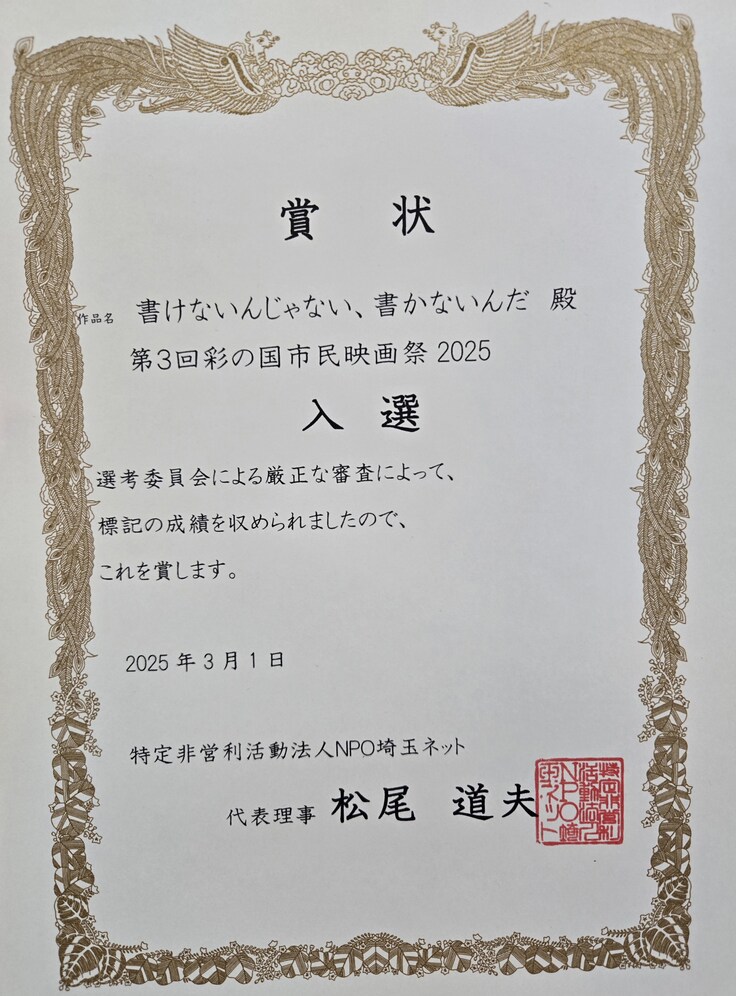 賞状
作品名 書けないんじゃない、書かないんだ 殿
第3回彩の国市民映画祭 2025
入選
選考委員会による厳正な審査によって、
標記の成績を収められましたので、
これを賞します。
2025 年 3 月 1 日
特定非営利活動法人NPO埼玉ネット
代表理事 松尾 道夫
特定非営利
活動法人
NPO埼
玉ネット